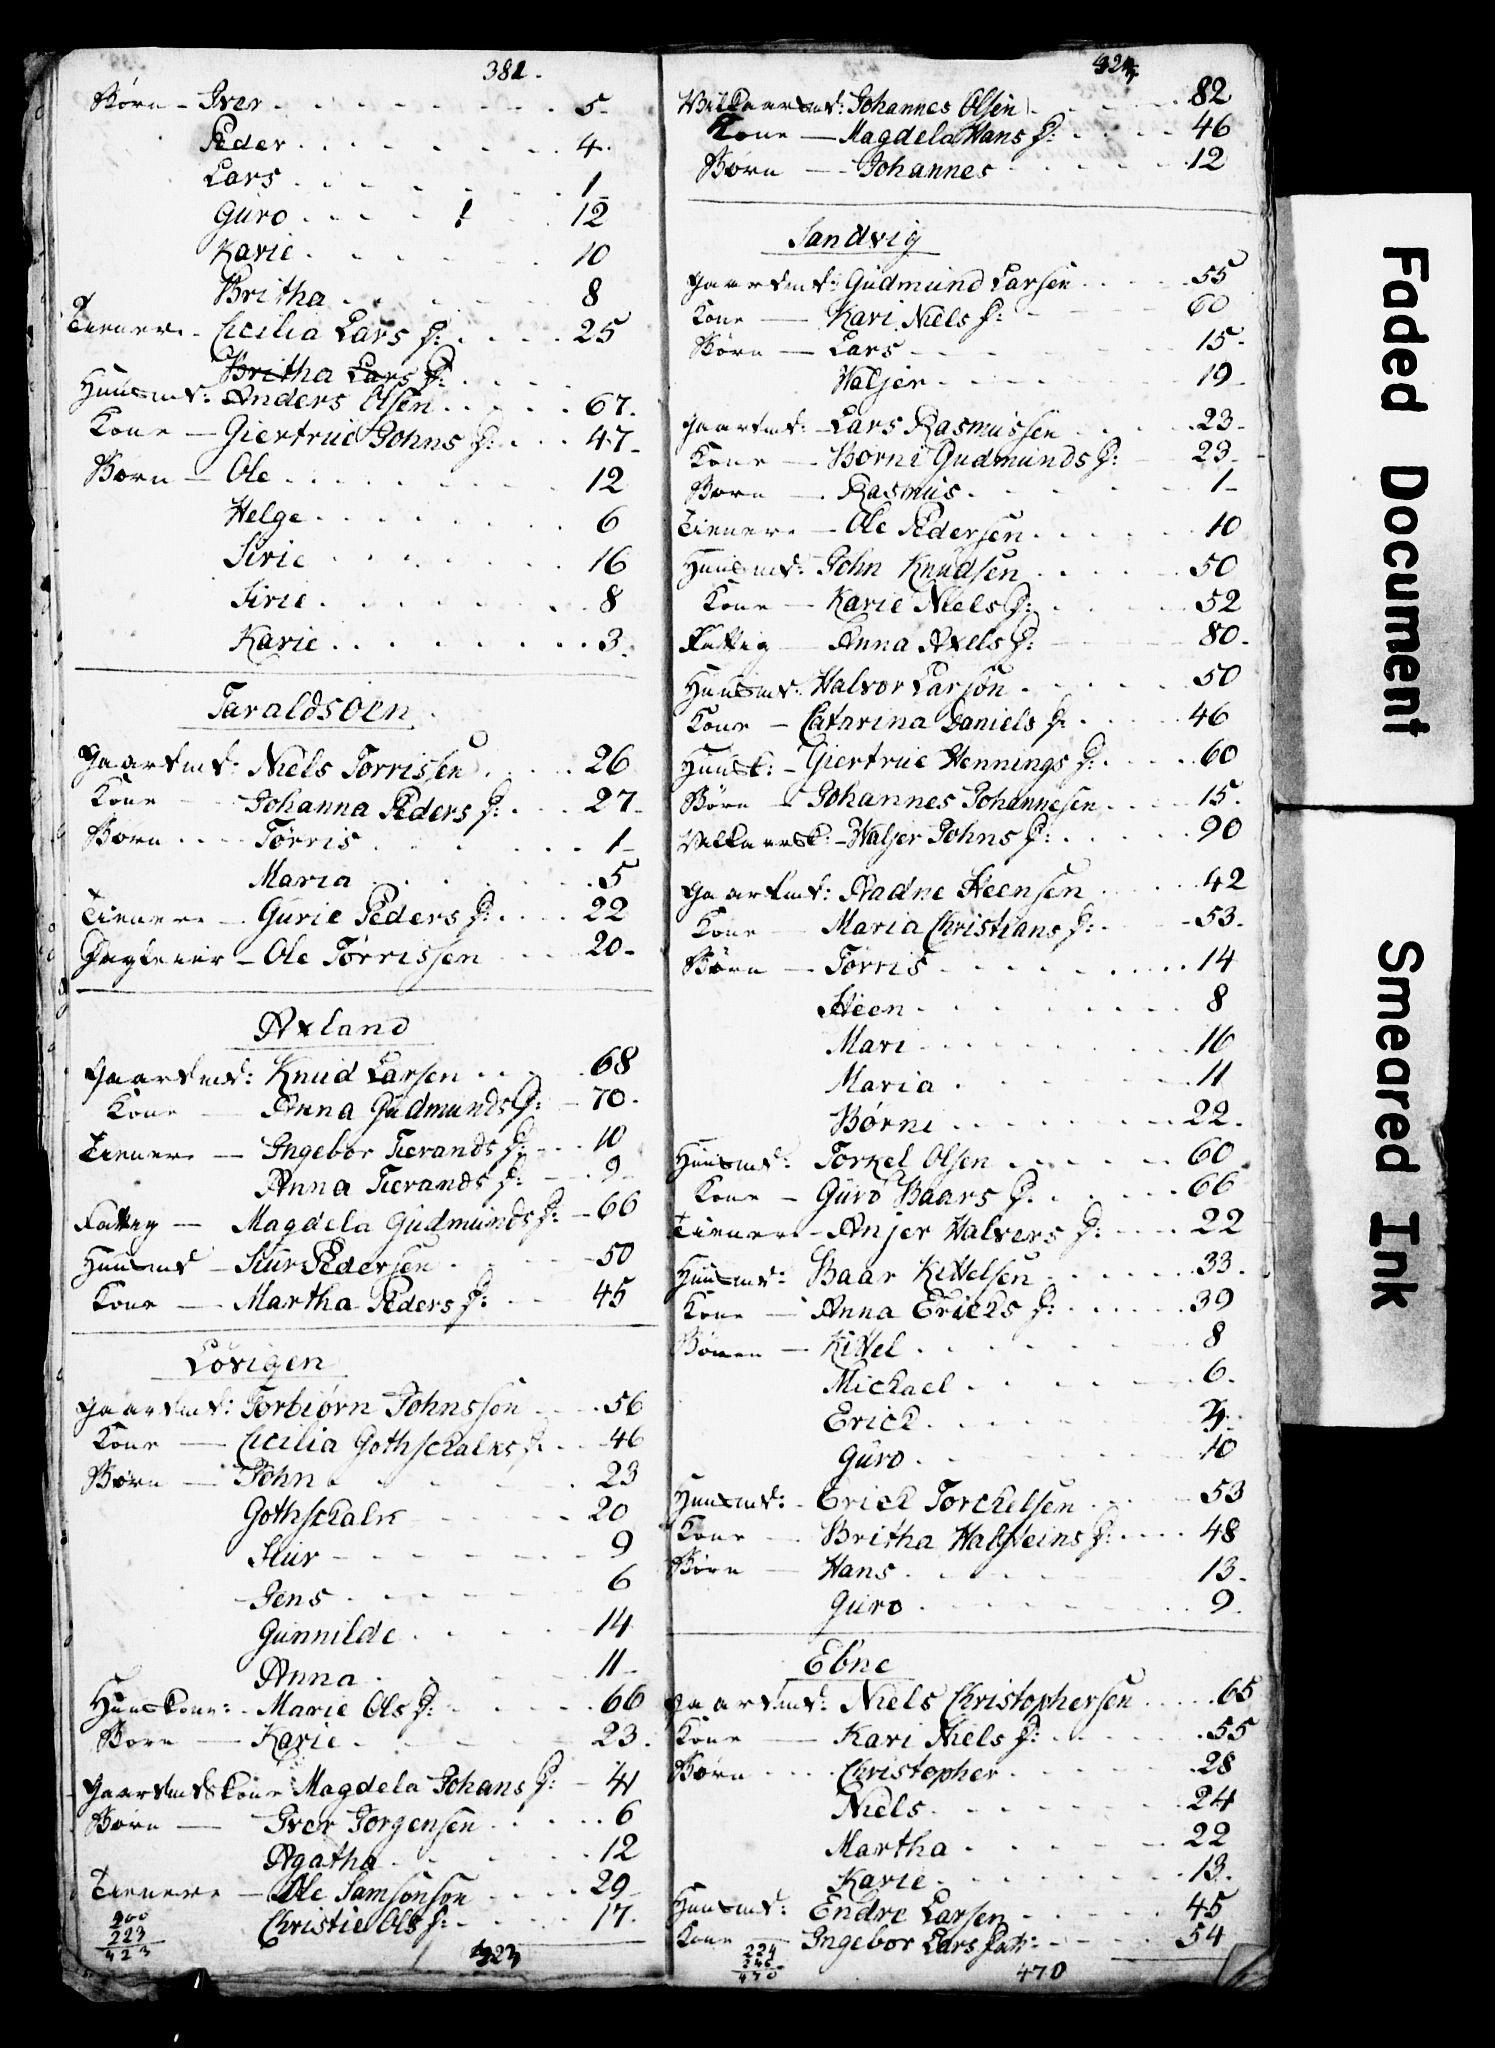 381.
Børn - Iver 5.
Peder 4.
Lars 1
Guro 12
Karie 10
Britha 8
Tienere - Cicilia Lars D: 25
Britha Lars D:
Huusmd: Anders Olsen 67.
Kone - Giertrud Johns D: 47.
Børn - Ole 12
Helge 6
Sirie 16
Sirie 8
Karie 3.
Taraldsøen
Gaardmd: Niels Tørrissen 26
Kone Johanna Peders D: 27.
Børn Tørris 1
Maria 5
Tienere - Gurie Peders D: 22
Ole Tørrissen 20.
Axland
Gaardmd: Knud Larsen 68
Kone - Anna Gudmunds D: 70.
Tienere - Ingebor Tierands D: 10
Anna Tierands D: 9
Fattig - Magdela Gudmunds D: 66
Huusmd - Siur Pedersen 50
Kone - Martha Peders D: 45
Løvigen
Gaardmd: Torbiørn Johnssen 56
Kone - Cicilia Gothschalks D: 46
Børn - John 23
Gothschalk 20
Siur 9
Jens 6
Gunnilde 14
Anna 11
Huuskone: - Marie Ols D: 66
Børn - Karie 23.
Gaardmds Kone Magdela Johans D: 41
Børn - Iver Jorgensen 6
Agatha 12
Tienere - Ole Samsonsøn 29
Christie Ols D: 17.
200
223
423
423
424
Vilkaarsmd: Johannes Olsen 82
Kone - Magdela Hans D: 46
Børn - Johannes 12
Sandvig
Gaardmd: Gudmund Larsen 55
Kone - Kari Niels D: 60
Børn - Lars 15.
Valjer 19
Gaardmd: - Lars Rasmussen 23
Kone - Børni Gudmunds D: 23
Børn - Rasmus 1
Tienere - Ole Pedersen 10
Huusmd: John Knudsen 50
Kone - Karie Niels D: 52
Fattig - Anna Axels D: 80.
Huusmd: Halvor Larsøn 50
Kone - Catarina Daniels D: 46
Huusk: - Giertrue Hennings D: 60
Børn - Johannes Johannesen 15.
Vilkaarsk: - Valjer Johns D: 90
Gaardmd: Aadne Steensen 42
Kone Maria Christians D: 53.
Børn - Tørris 14
Steen 8
Mari 16
Maria 11
Børni 22.
Huusmd: Torkel Olsen 60
Kone - Guro Baars D. 66
Tienere - Anjer Halvers D: 22
Huusmd: Baar Kittelsen 33.
Kone - Anna Ericks D: 39
Børn - Kittel 8
Michael 6.
Erick 4.
Guro 10
Huusmd: - Erick Torckelsen 53
Kone - Britha Halsteins D: 48
Børn - Hans 13.
Guro 9.
Ebne
Gaardmd: Niels Christophersen 65
Kone - Kari Niels D: 55
Børn Christopher 28
Niels 24
Martha 22
Karie 13.
Huusmd: Endre Larsen 45
Kone - Ingebor Lars Datr: 54
224
246
470
470
Faded Document
Smeared Ink